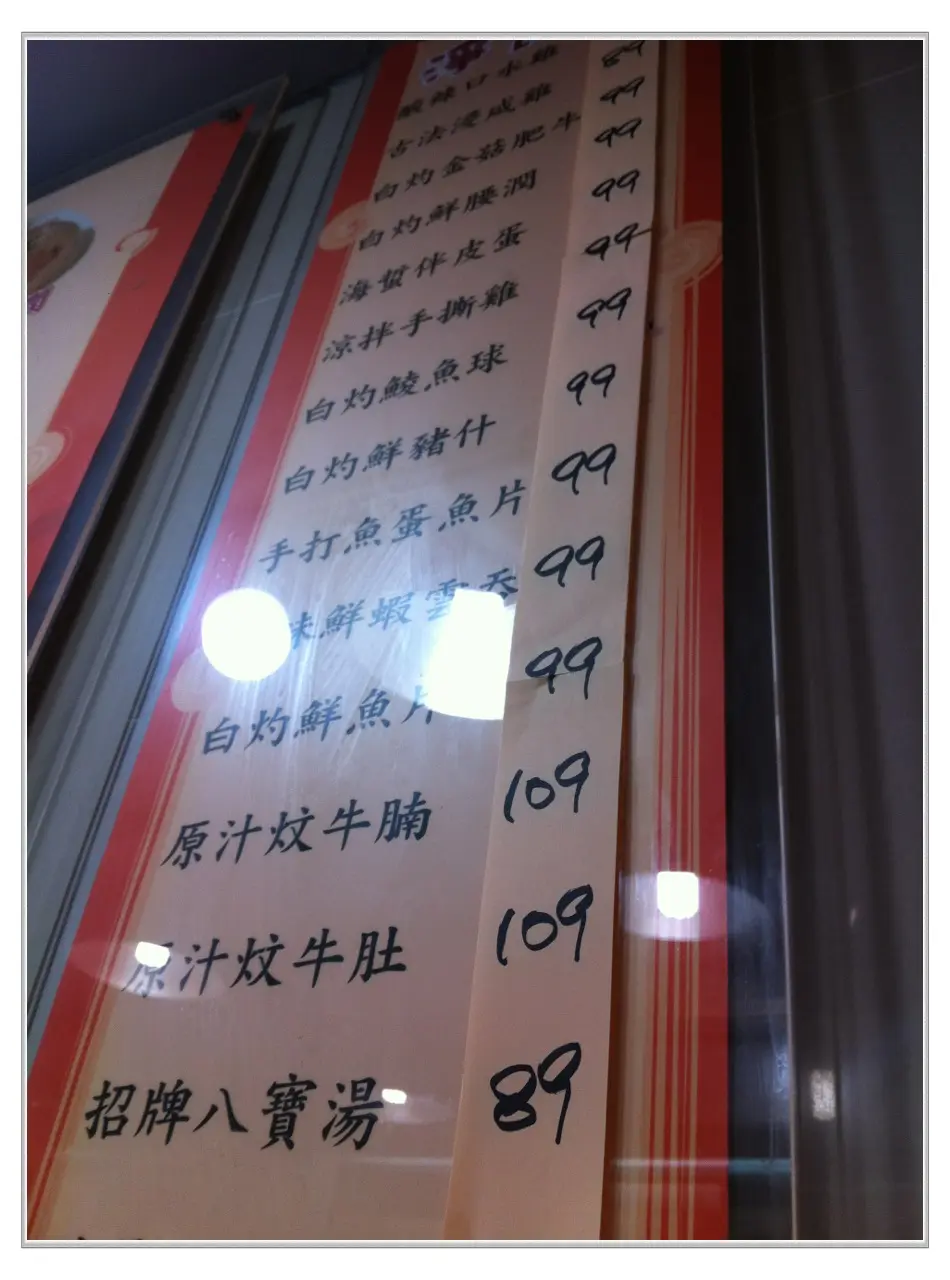 辣口水雞
古法浸咸雞 89
白灼金菇肥牛 99
白灼鮮腰潤 99
海蜇伴皮蛋 99
涼拌手撕雞 99
白灼鯪魚球 99
白灼鮮豬什 99
手打魚蛋魚片 99
味鮮蝦雲吞 99
白灼鮮魚片 99
原汁炆牛腩 109
原汁炆牛肚 109
招牌八寶湯 89